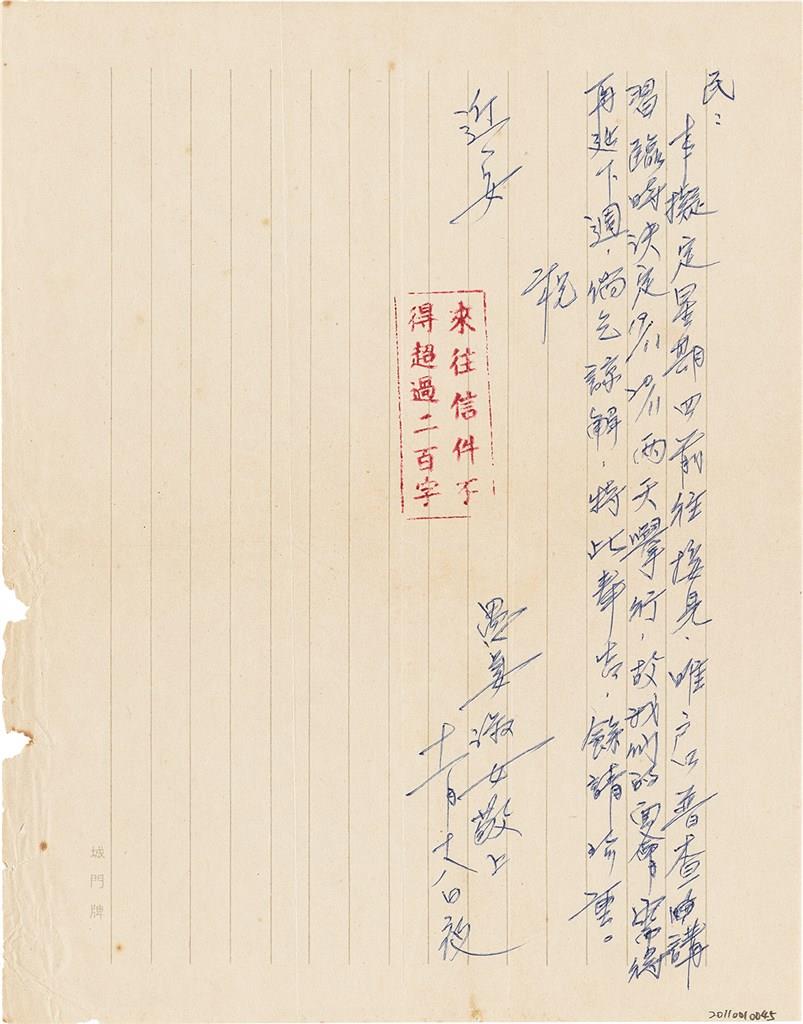 民：
本擬定星期四前往接見，唯戶口普查的講
習臨時決定19/11 20/11兩天舉行，故我們的面會需得
再延下週，倘乞諒解，特此奉告，餘請珍重。
祝
近安
愚妻淑女敬上
十一月十八日夜
來往信件不
得超過二百字
城門牌
20110010045